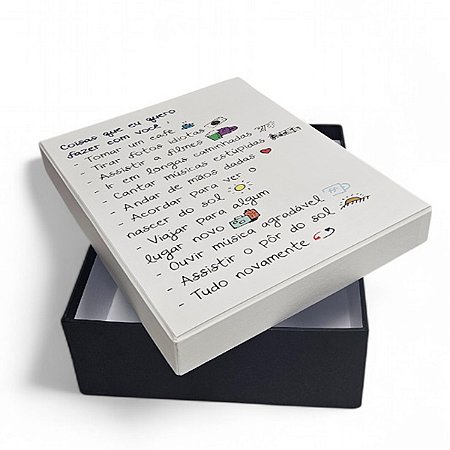 Coisas que eu quero
fazer com você:
- Tomar um café
- Tirar fotos idiotas
- Assistir a filmes
- Ir em longas caminhadas
- Cantar músicas estúpidas
- Andar de mãos dadas
- Acordar para ver o
nascer do sol
- Viajar para algum
lugar novo
- Ouvir música agradável
- Assistir o pôr do sol
- Tudo novamente